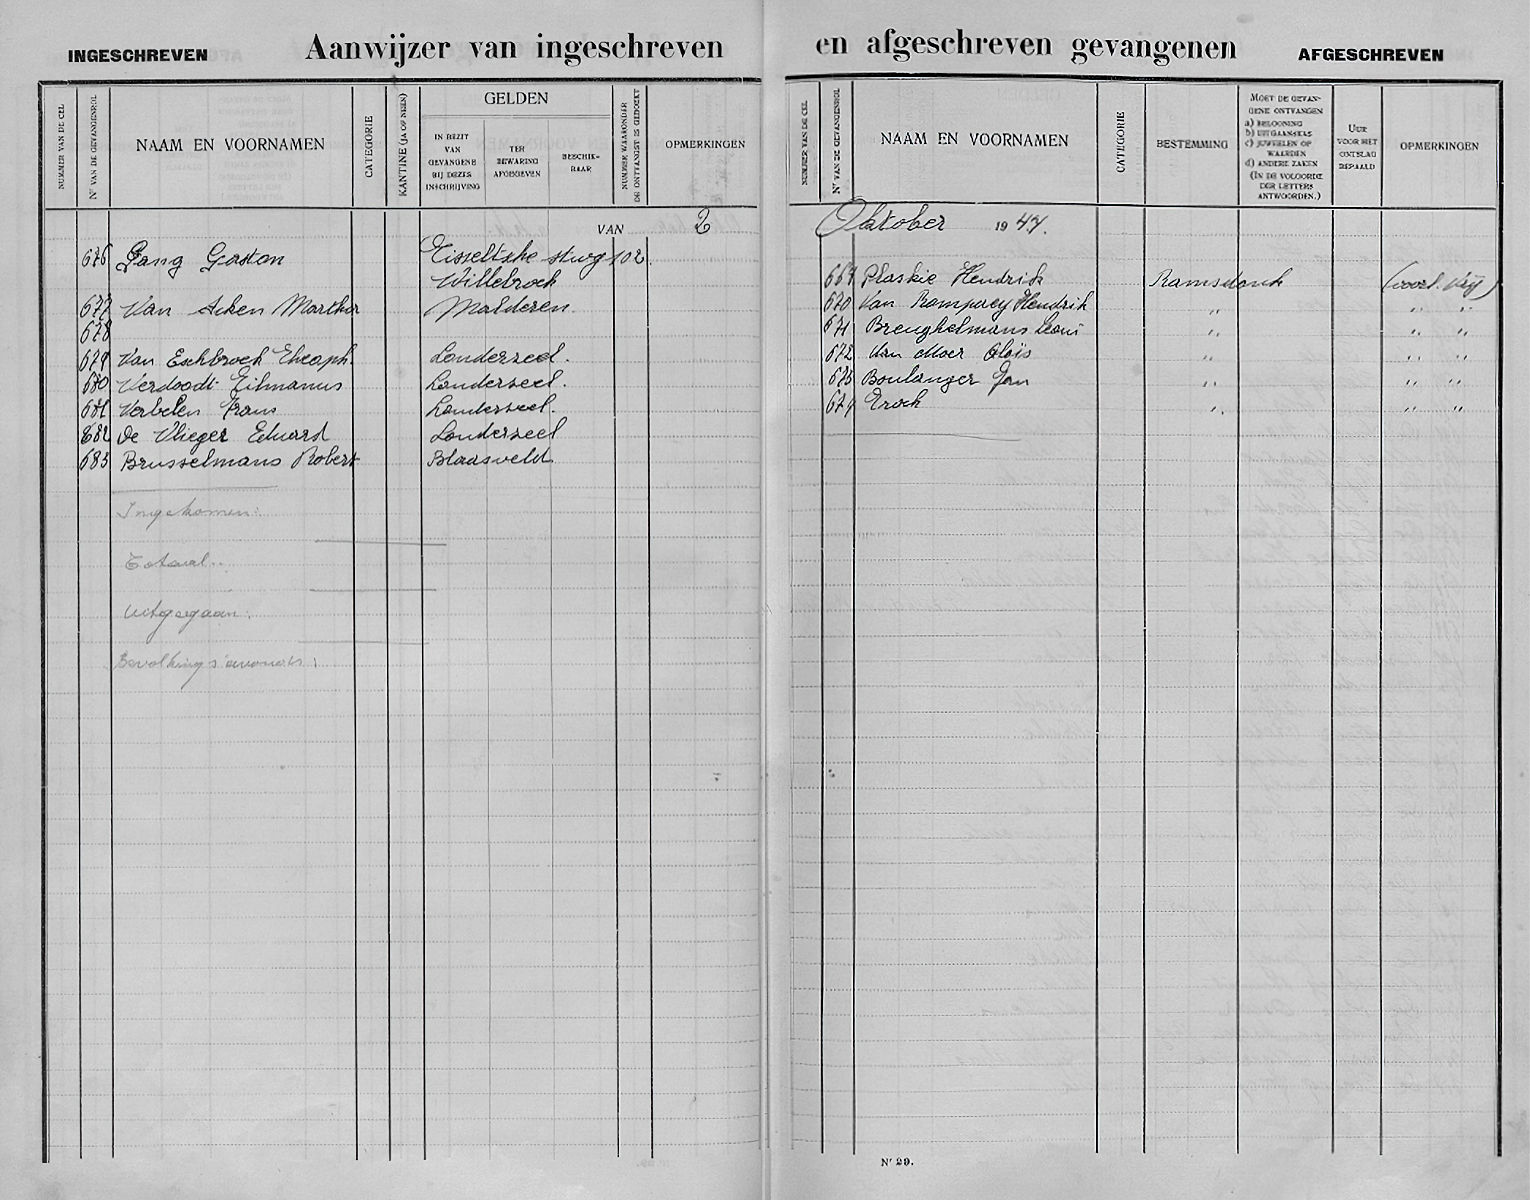 INGESCHREVEN Aanwijzer van ingeschreven en afgeschreven gevangenen AFGESCHREVEN
NUMMER VAN DE CEL
Nr VAN DE GEVANGENROL
NAAM EN VOORNAMEN
CATEGORIE
KANTINE (JA OF NEEN)
GELDEN
IN BEZIT VAN GEVANGENE BIJ DEZES INSCHRIJVING
TER BEWARING AFGEGEVEN
BESCHIK-BAAR
NUMMER WAARONDER DE ONTVANGST IS GEBOEKT
OPMERKINGEN
VAN 2
676 Lang Gaston Tisseltsche stwg 102
Willebroek
677 Van Acken Martha Malderen.
678
679 Van Eeckbroek Theoph. Londerzeel.
680 Verdoodt Tilmanus Londerzeel.
681 Verbelen Frans Londerzeel.
682 De Vlieger Eduard Londerzeel
683 Brusselmans Robert Blaasveld
Ingekomen:
Totaal..
Uitgegaan:
Bevolking 's avonds:
NUMMER VAN DE CEL
Nr VAN DE GEVANGENROL
NAAM EN VOORNAMEN
CATEGORIE
BESTEMMING
MOET DE GEVAN-
GENE ONTVANGEN
a) BELOONING
b) UITGAANSKAS
c) JUWEELEN OF
WAARDEN
d) ANDERE ZAKEN
(IN DE VOLGORDE
DER LETTERS
ANTWOORDEN.)
UUR
VOOR HET
ONTSLAG
BEPAALD
OPMERKINGEN
Oktober 1944.
667 Plaskie Hendrik Ramsdonk (voorl. vrij)
670 Van Rompaey Hendrik " " "
671 Breughelmans Leoni " " "
672 Van Moer Aloïs " " "
675 Boulanger Jan " " "
679 Troch " " "
Nr 29.